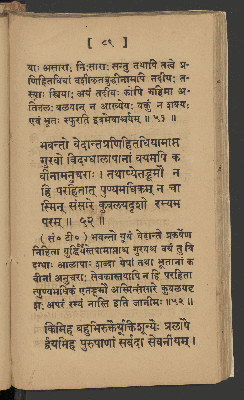 [ ८९ ]
याः असाराः निःसाराः सन्तु तथापि तत्वे प्र
णिहितधियां वशीतलबुद्धीनामपि तदीयः त
स्याः स्त्रियाः अयं तदीयः कोपि महिमा अ
तिबलः बलवान् न आख्येयः वक्तुं न शक्यः
एवं भूतः स्फुरति इत्यमेवाश्चर्यम् ॥ ५१ ॥
भवन्तो वेदान्तप्रणिहितधियामाप्त
गुरवो विदग्धालापानां वयमपि क
वीनामनुचराः । तथाप्येतद्ब्रूमो न
हि परहितात् पुण्यमधिकम् न चा
स्मिन् संसारे कुवलयदृशो रम्यम
परम् ॥ ५२ ॥
( सं० टी० ) भवन्तो यूयं वेदान्ते प्रकर्षेण
निहिता बुद्धिर्यैस्तेषामाप्ताश्च गुरवश्च वयं तु वि
दग्धाः आलापाः शब्दा येषां तथा भूतानां क
वीनां अनुचराः सेवकास्तथापि न हि परहिता
त्पुण्यमधिकं एतद्ब्रूमो अस्मिन्संसारे कुवलयदृ
शः अपरं रम्यं नास्ति इति जानीमः ॥५२॥
किमिह बहुभिरुक्तैर्युक्तिशून्यैः प्रलापै
र्द्वयमिह पुरुषाणां सर्वदा सेवनीयम् ।